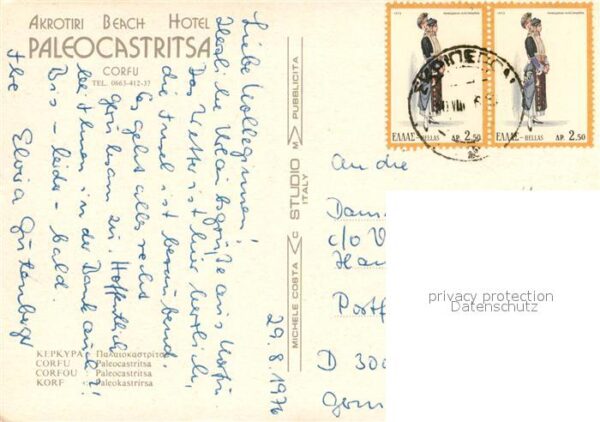 AKROTIRI BEACH HOTEL
PALEOCASTRITSA
CORFU
TEL. 0663-412-37
Liebe Kolleginnen!
Herzliche Urlaubsgrüße aus Korfu.
Das Wetter ist hier herrlich,
die Insel ist bezaubernd.
Es geht alles recht
geruhsam zu. Hoffentlich
bei Ihnen in der Bank auch?!
Bis – leider – bald.
Ihre Elvira
29.8.1976
ΚΕΡΚΥΡΑ : Παλαιοκαστρίτσα
CORFU : Paleocastritsa
CORFOU : Paleocastritsa
KORF : Paleokastrirsa
MICHELE COSTA
STUDIO
ITALY
PUBBLICITA
ΕΛΛΑΣ-HELLAS ΔΡ. 2,50
ΕΛΛΑΣ-HELLAS ΔΡ. 2,50
An die
Dam
c/o V
Han
Postf
D 300
privacy protection
Datenschutz